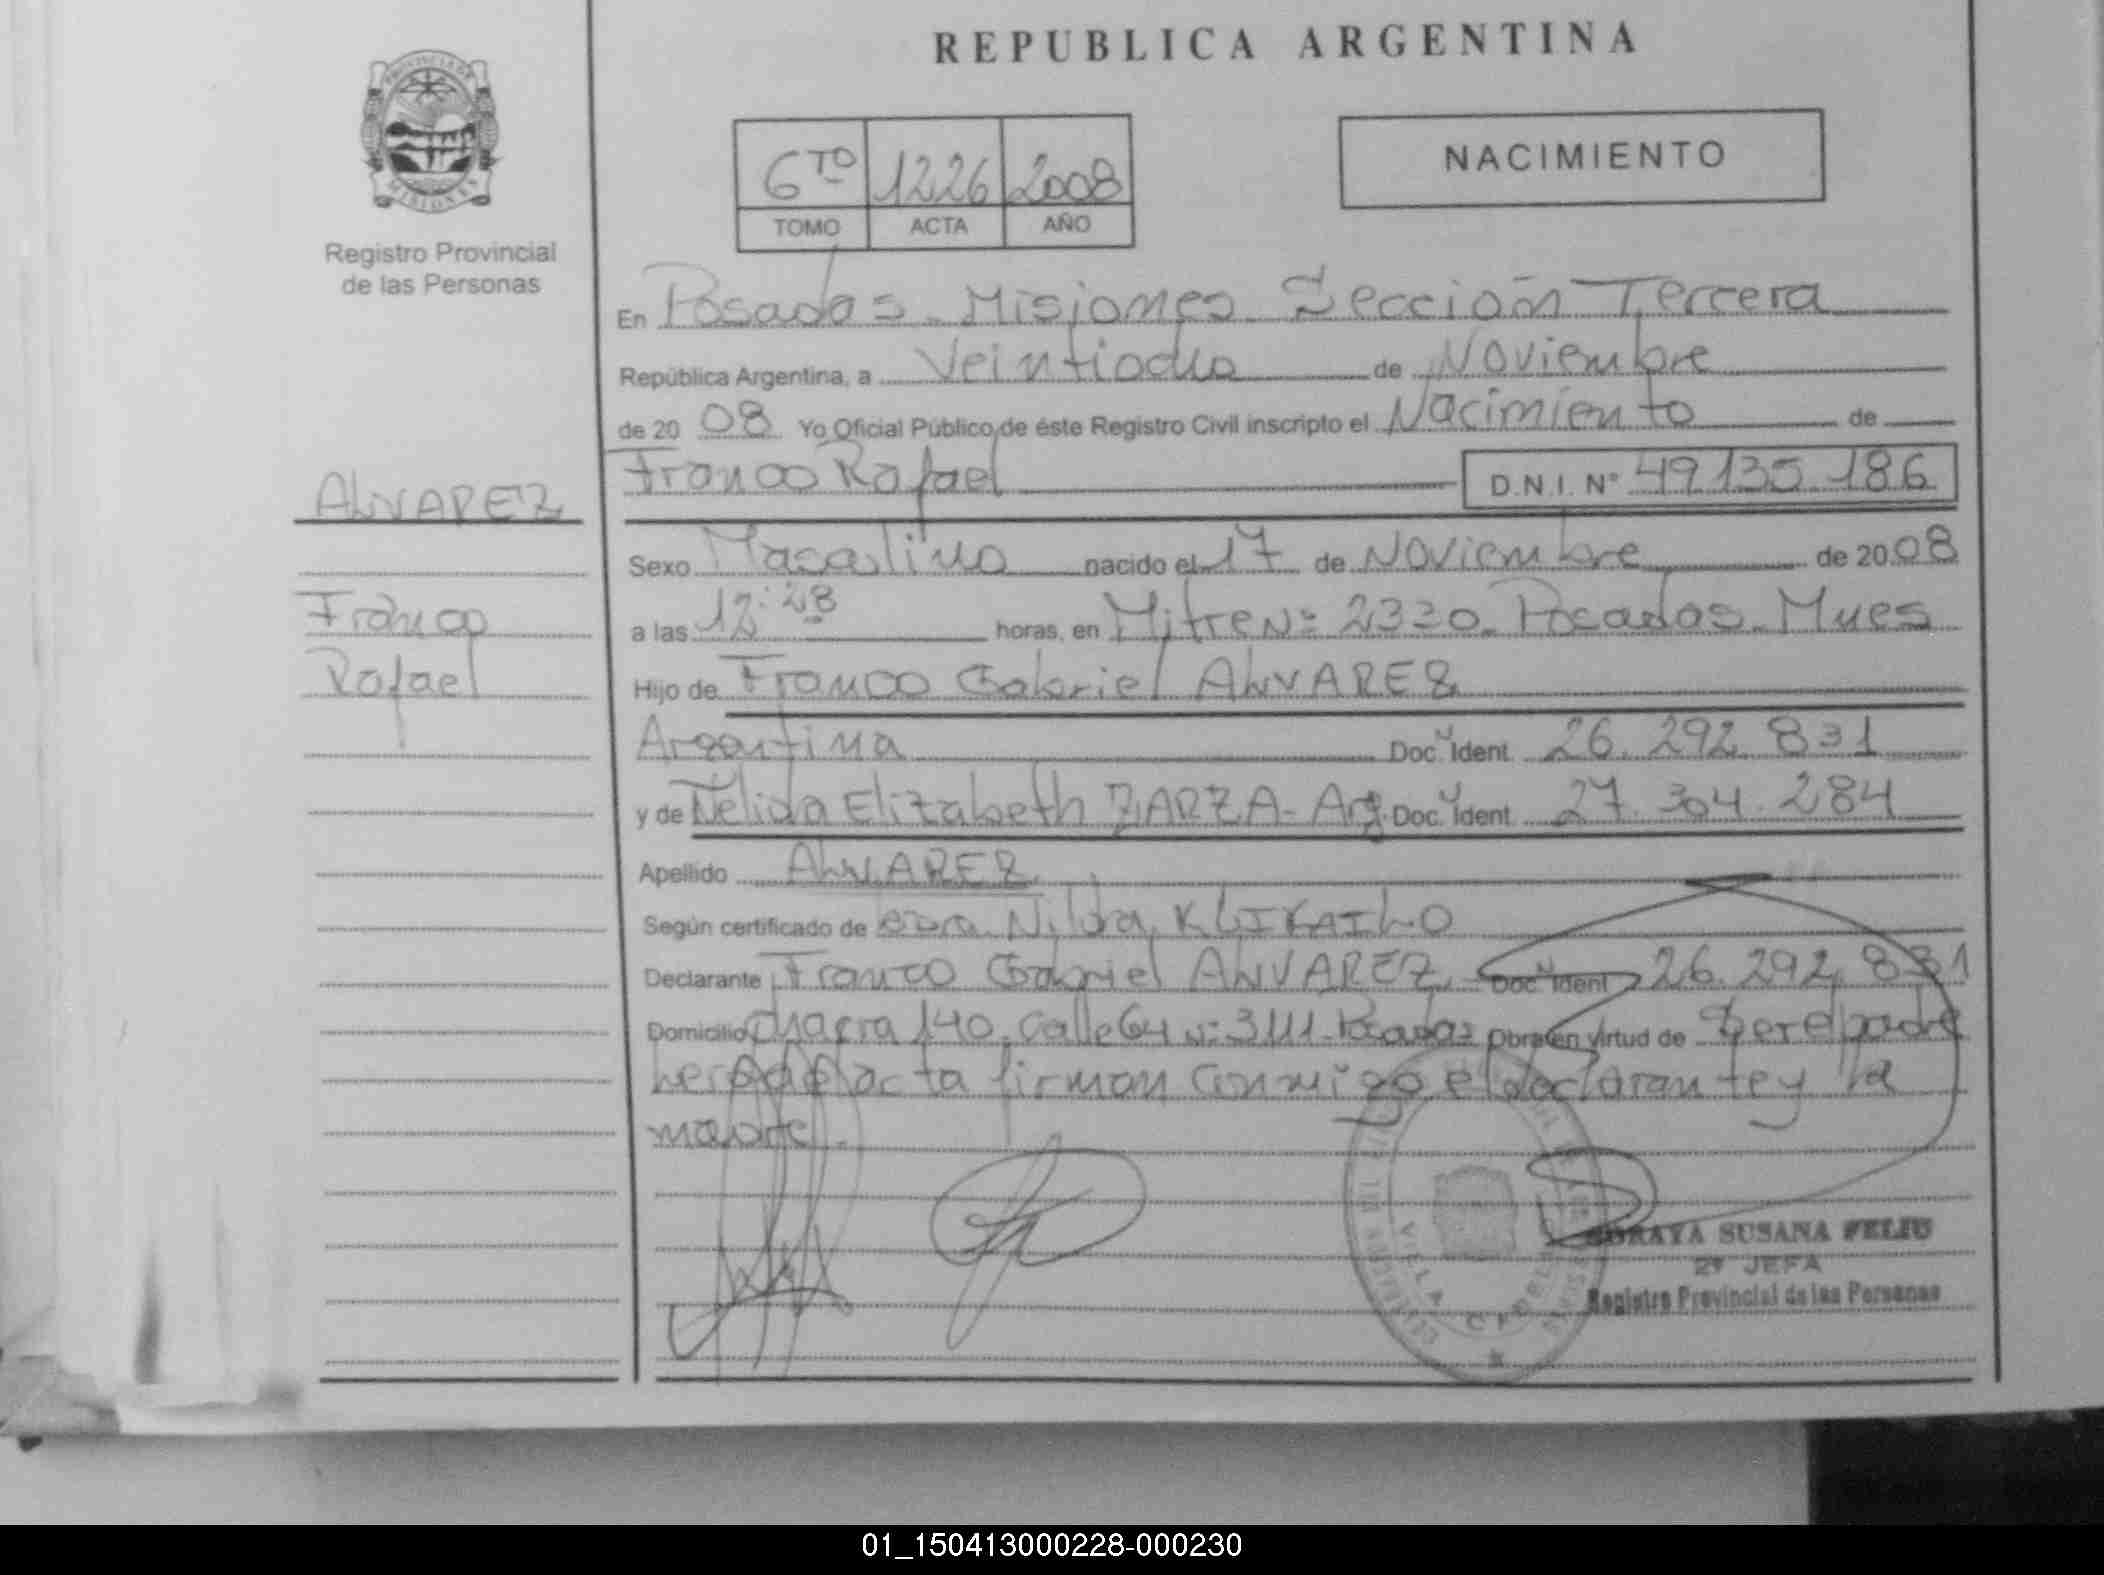 REPUBLICA ARGENTINA
PROVINCIA DE
MISIONES
Registro Provincial
de las Personas
6TO 1226 2008
TOMO ACTA AÑO
NACIMIENTO
En Posadas - Misiones - Sección Tercera
República Argentina, a Veintiocho de Noviembre
de 20 08 Yo Oficial Público de éste Registro Civil inscripto el Nacimiento de
ALVAREZ
Franco Rafael D.N.I. Nº 49.135.186
Sexo Masculino nacido el 17 de Noviembre de 20 08
Franco
a las 12:28 horas, en Mitre Nº 2330 - Posadas - Mnes
Rafael
Hijo de Franco Gabriel ALVAREZ
Argentina Doc. Ident. 26.292.831
y de Nelida Elizabeth ZARZA - Arg. Doc. Ident. 27.304.284
Apellido ALVAREZ
Según certificado de Nilda
Declarante Franco Gabriel ALVAREZ Doc. Ident 26.292.831
Domicilio Chacra 140, Calle 64 Nº 3111 - Posadas Obra en virtud de Ser el padre
acta firman conmigo el declarante y la
madre.
SORAYA SUSANA FELIU
2º JEFA
Registro Provincial de las Personas
01_150413000228-000230